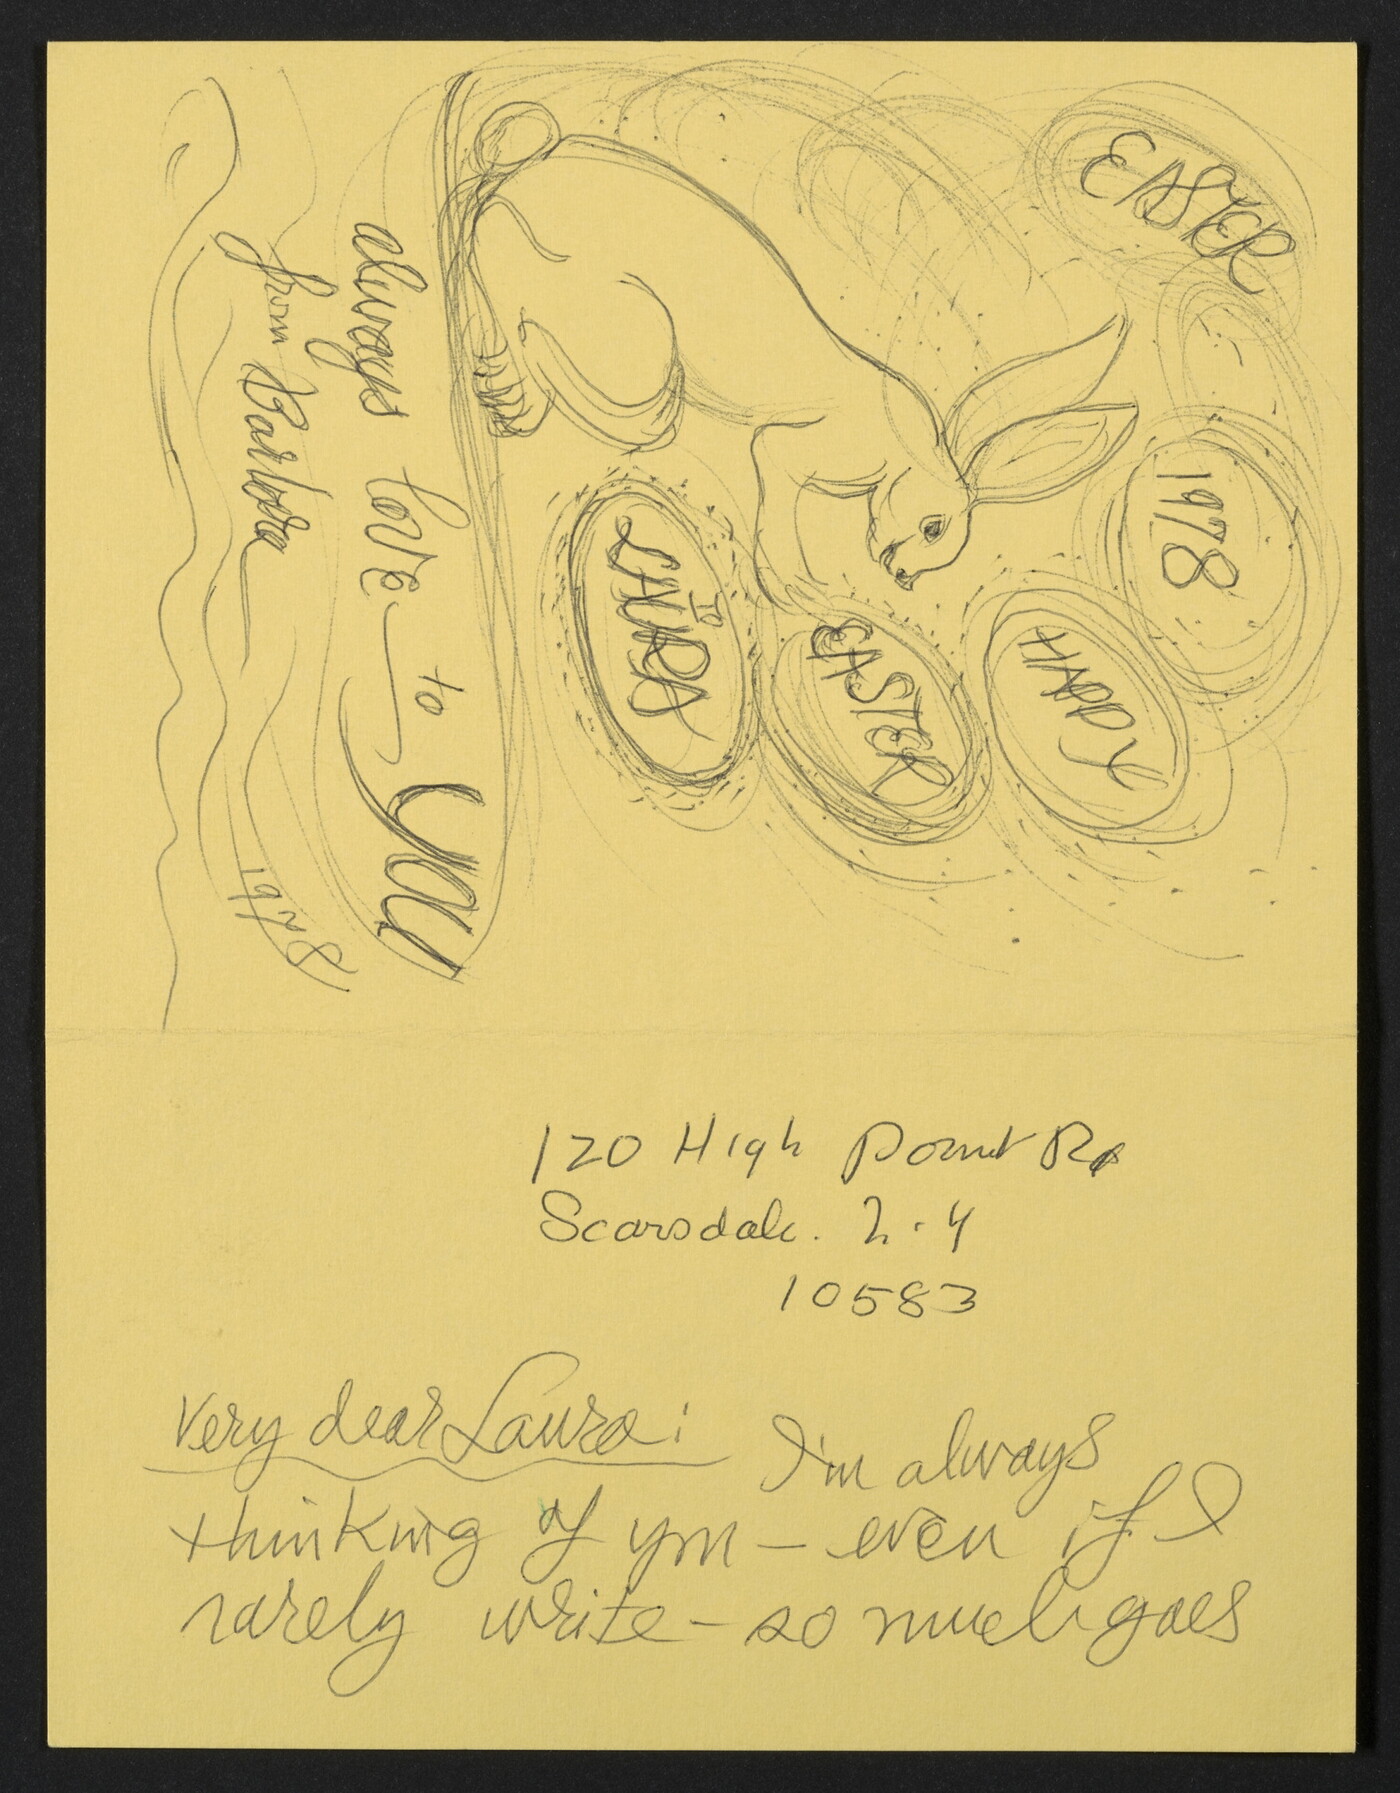 EASTER
1978
HAPPY
EASTER
TO
LAURA
always love to you
from Barbara
1978
120 High Point Rd
Scarsdale. N.Y
10583
Very dear Laura: I'm always
thinking of you — even if I
rarely write — so much goes